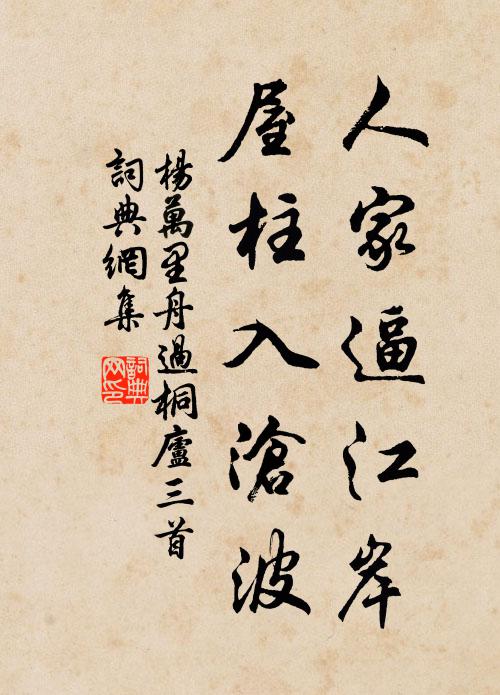 人家逼江岸
屋柱入滄波
楊萬里舟過桐廬三首
詞典網集
詞典網印